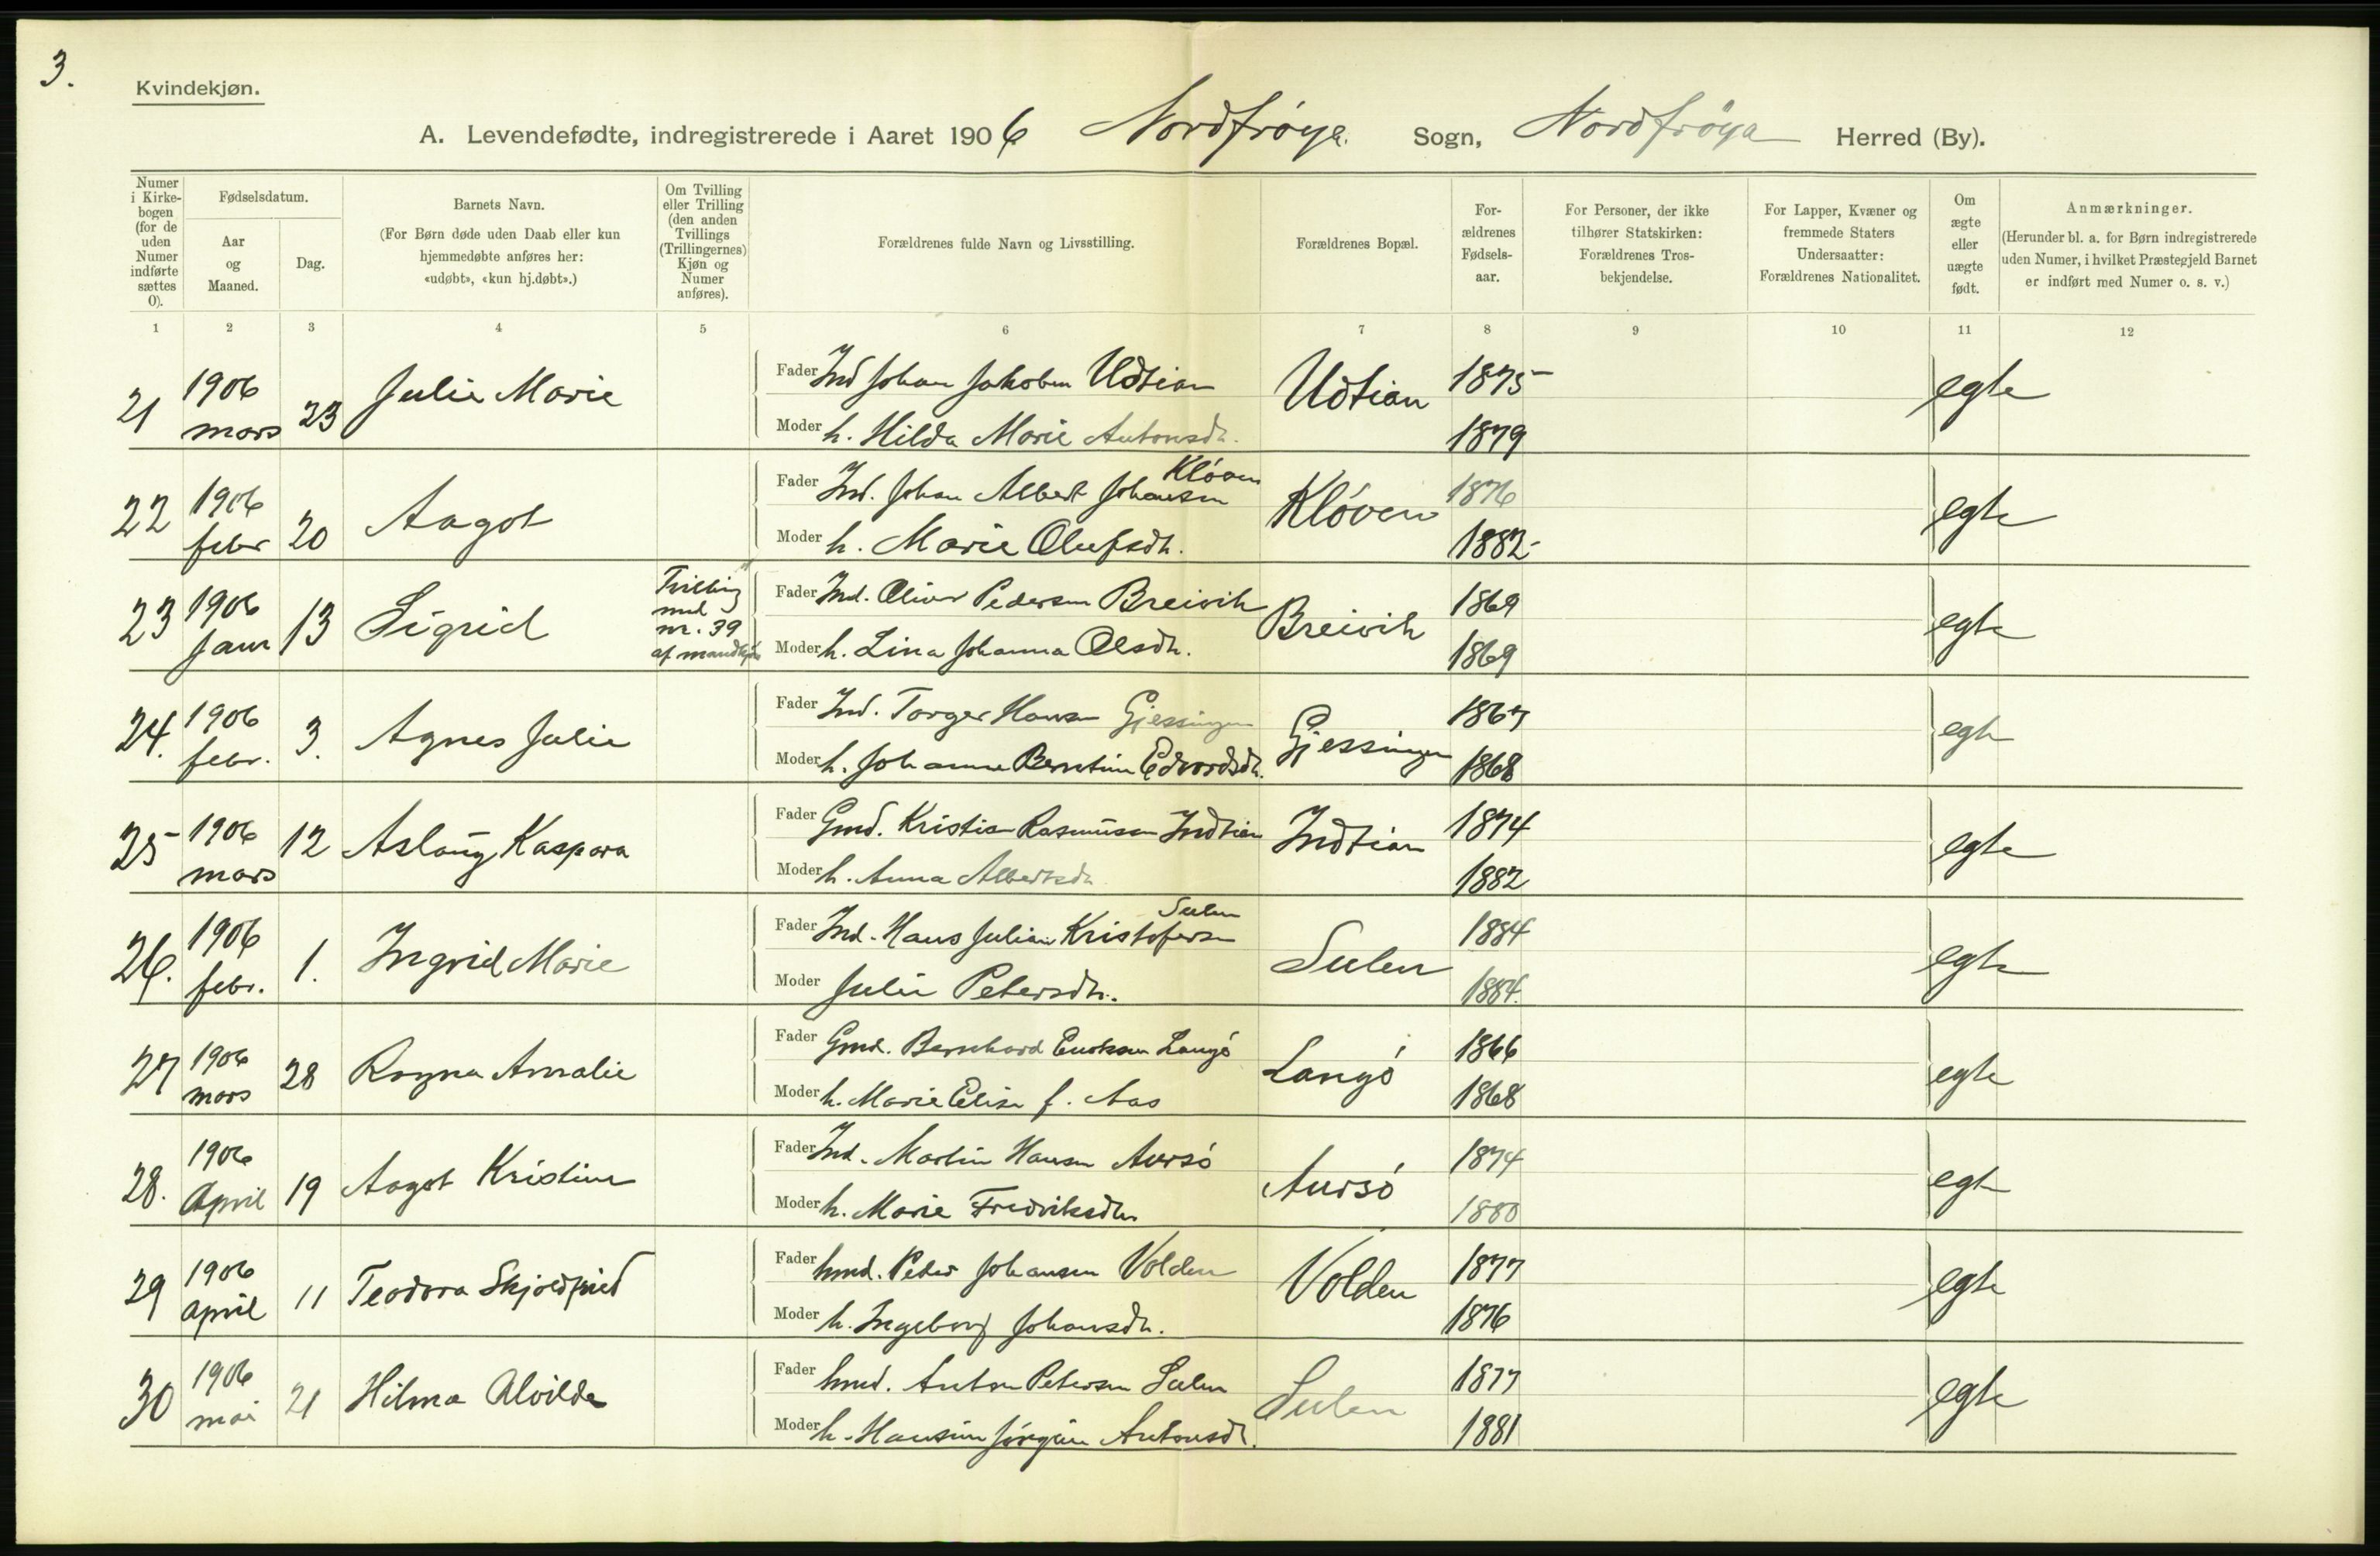 3.
Kvindekjøn.
A. Levendefødte, indregistrerede i Aaret 1906 Nordfrøya Sogn, Nordfrøya Herred (By).
Numer i Kirkebogen (for de uden Numer indførte sættes 0).
Fødselsdatum.
Aar og Maaned.
Dag.
Barnets Navn.
(For Børn døde uden Daab eller kun hjemmedøbte anføres her: «udøbt», «kun hj.døbt».)
Om Tvilling eller Trilling (den anden Tvillings (Trillingernes) Kjøn og Numer anføres).
Forældrenes fulde Navn og Livsstilling.
Forældrenes Bopæl.
Forældrenes Fødselsaar.
For Personer, der ikke tilhører Statskirken: Forældrenes Trosbekjendelse.
For Lapper, Kvæner og fremmede Staters Undersaatter: Forældrenes Nationalitet.
Om ægte eller uægte født.
Anmærkninger.
(Herunder bl. a. for Børn indregistrerede uden Numer, i hvilket Præstegjeld Barnet er indført med Numer o. s. v.)
1 2 3 4 5 6 7 8 9 10 11 12
21 1906 mars 23 Julie Marie
Fader Ind Johan Jakobsen Udtian Udtian 1875 egte
Moder h. Hilda Marie Antonsdtr. 1879
22 1906 febr 20 Aagot
Fader Ind. Johan Albert Johansen Kløven Kløven 1876 egte
Moder h. Marie Olufsdtr. 1882
23 1906 Janr 13 Sigrid
Tvilling med nr. 39 af mandkjøn
Fader Ind. Oliver Pedersen Breivik Breivik 1869 egte
Moder h. Lina Johanna Olsdtr. 1869
24. 1906 febr. 3. Agnes Julie
Fader Ind. Torger Hansen Gjessingen Gjessingen 1867 egte
Moder h. Johanna Berntine Edvardsdtr. 1868
25 1906 mars 12 Aslaug Kaspara
Fader Gmd. Kristian Rasmussen Indtian Indtian 1874 egte
Moder h. Anna Albertsdtr 1882
26. 1906 febr. 1. Ingrid Marie
Fader Ind. Hans Julian Kristofersen Sulen Sulen 1884 egte
Moder Julie Petersdtr. 1884.
27 1906 mars 28 Ragna Amalie
Fader Gmd. Bernhard Langø Langø 1866 egte
Moder h. Marie Elise f. Aas 1868
28. 1906 April 19 Aagot Kristine
Fader Ind. Martin Hansen Aursø Aursø 1874 egte
Moder h. Marie Fredriksdtr 1880
29 1906 april 11 Teodora Skjoldfrid
Fader hmd. Peder Johansen Volden Volden 1877 egte
Moder h. Ingeborg Johansdtr. 1876
30 1906 mai 21 Hilma Alvilde
Fader hmd. Anton Petersen Sulen Sulen 1877 egte
Moder h. Hansine Jørgine Antonsdtr. 1881